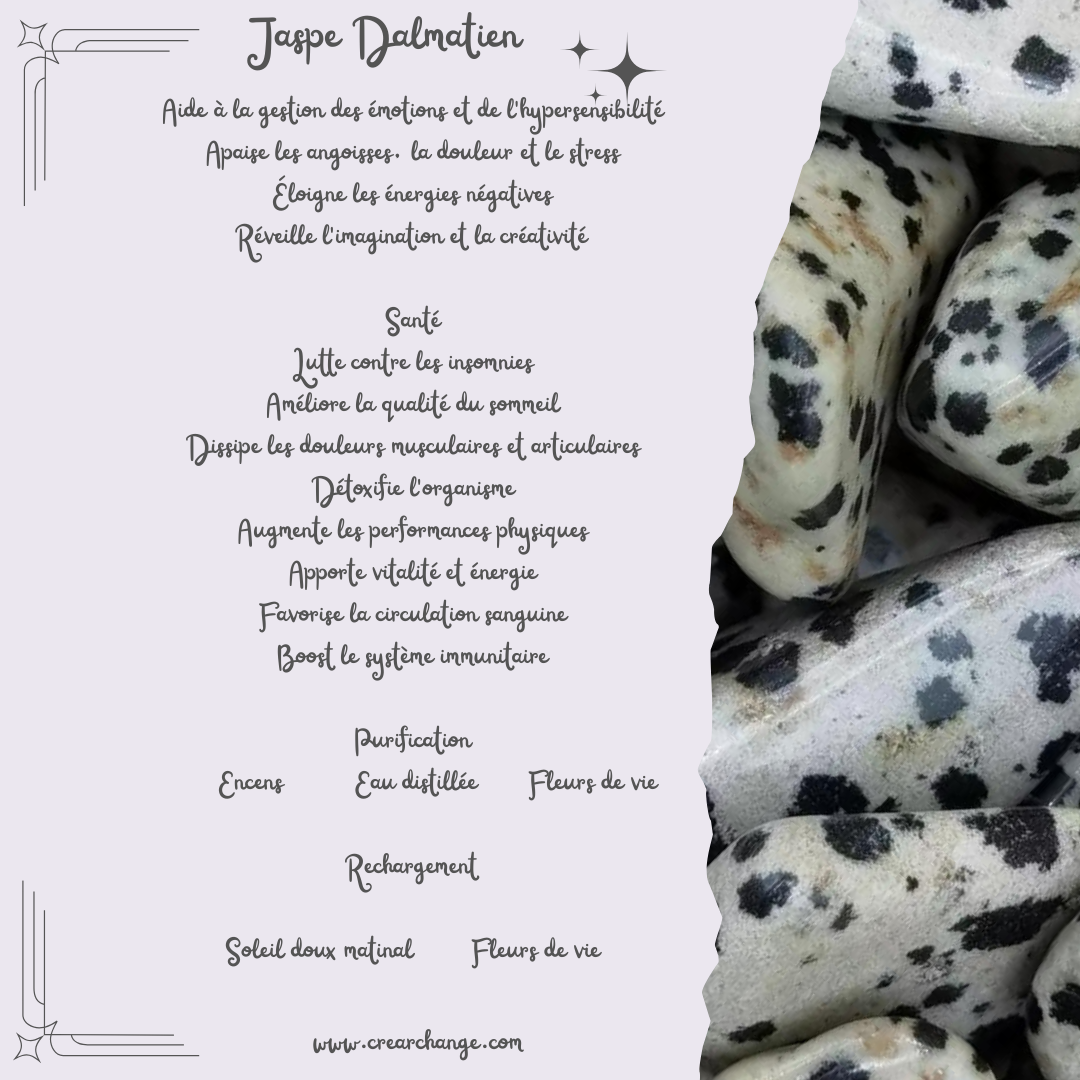 Jaspe Dalmatien
Aide à la gestion des émotions et de l'hypersensibilité
Apaise les angoisses. la douleur et le stress
Éloigne les énergies négatives
Réveille l'imagination et la créativité
Santé
Lutte contre les insomnies
Améliore la qualité du sommeil
Dissipe les douleurs musculaires et articulaires
Détoxifie l'organisme
Augmente les performances physiques
Apporte vitalité et énergie
Favorise la circulation sanguine
Boost le système immunitaire
Purification
Encens Eau distillée Fleurs de vie
Rechargement
Soleil doux matinal Fleurs de vie
www.crearchange.com